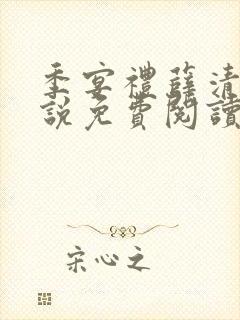 季宴禮薛清
說免費閱讀
宋心之